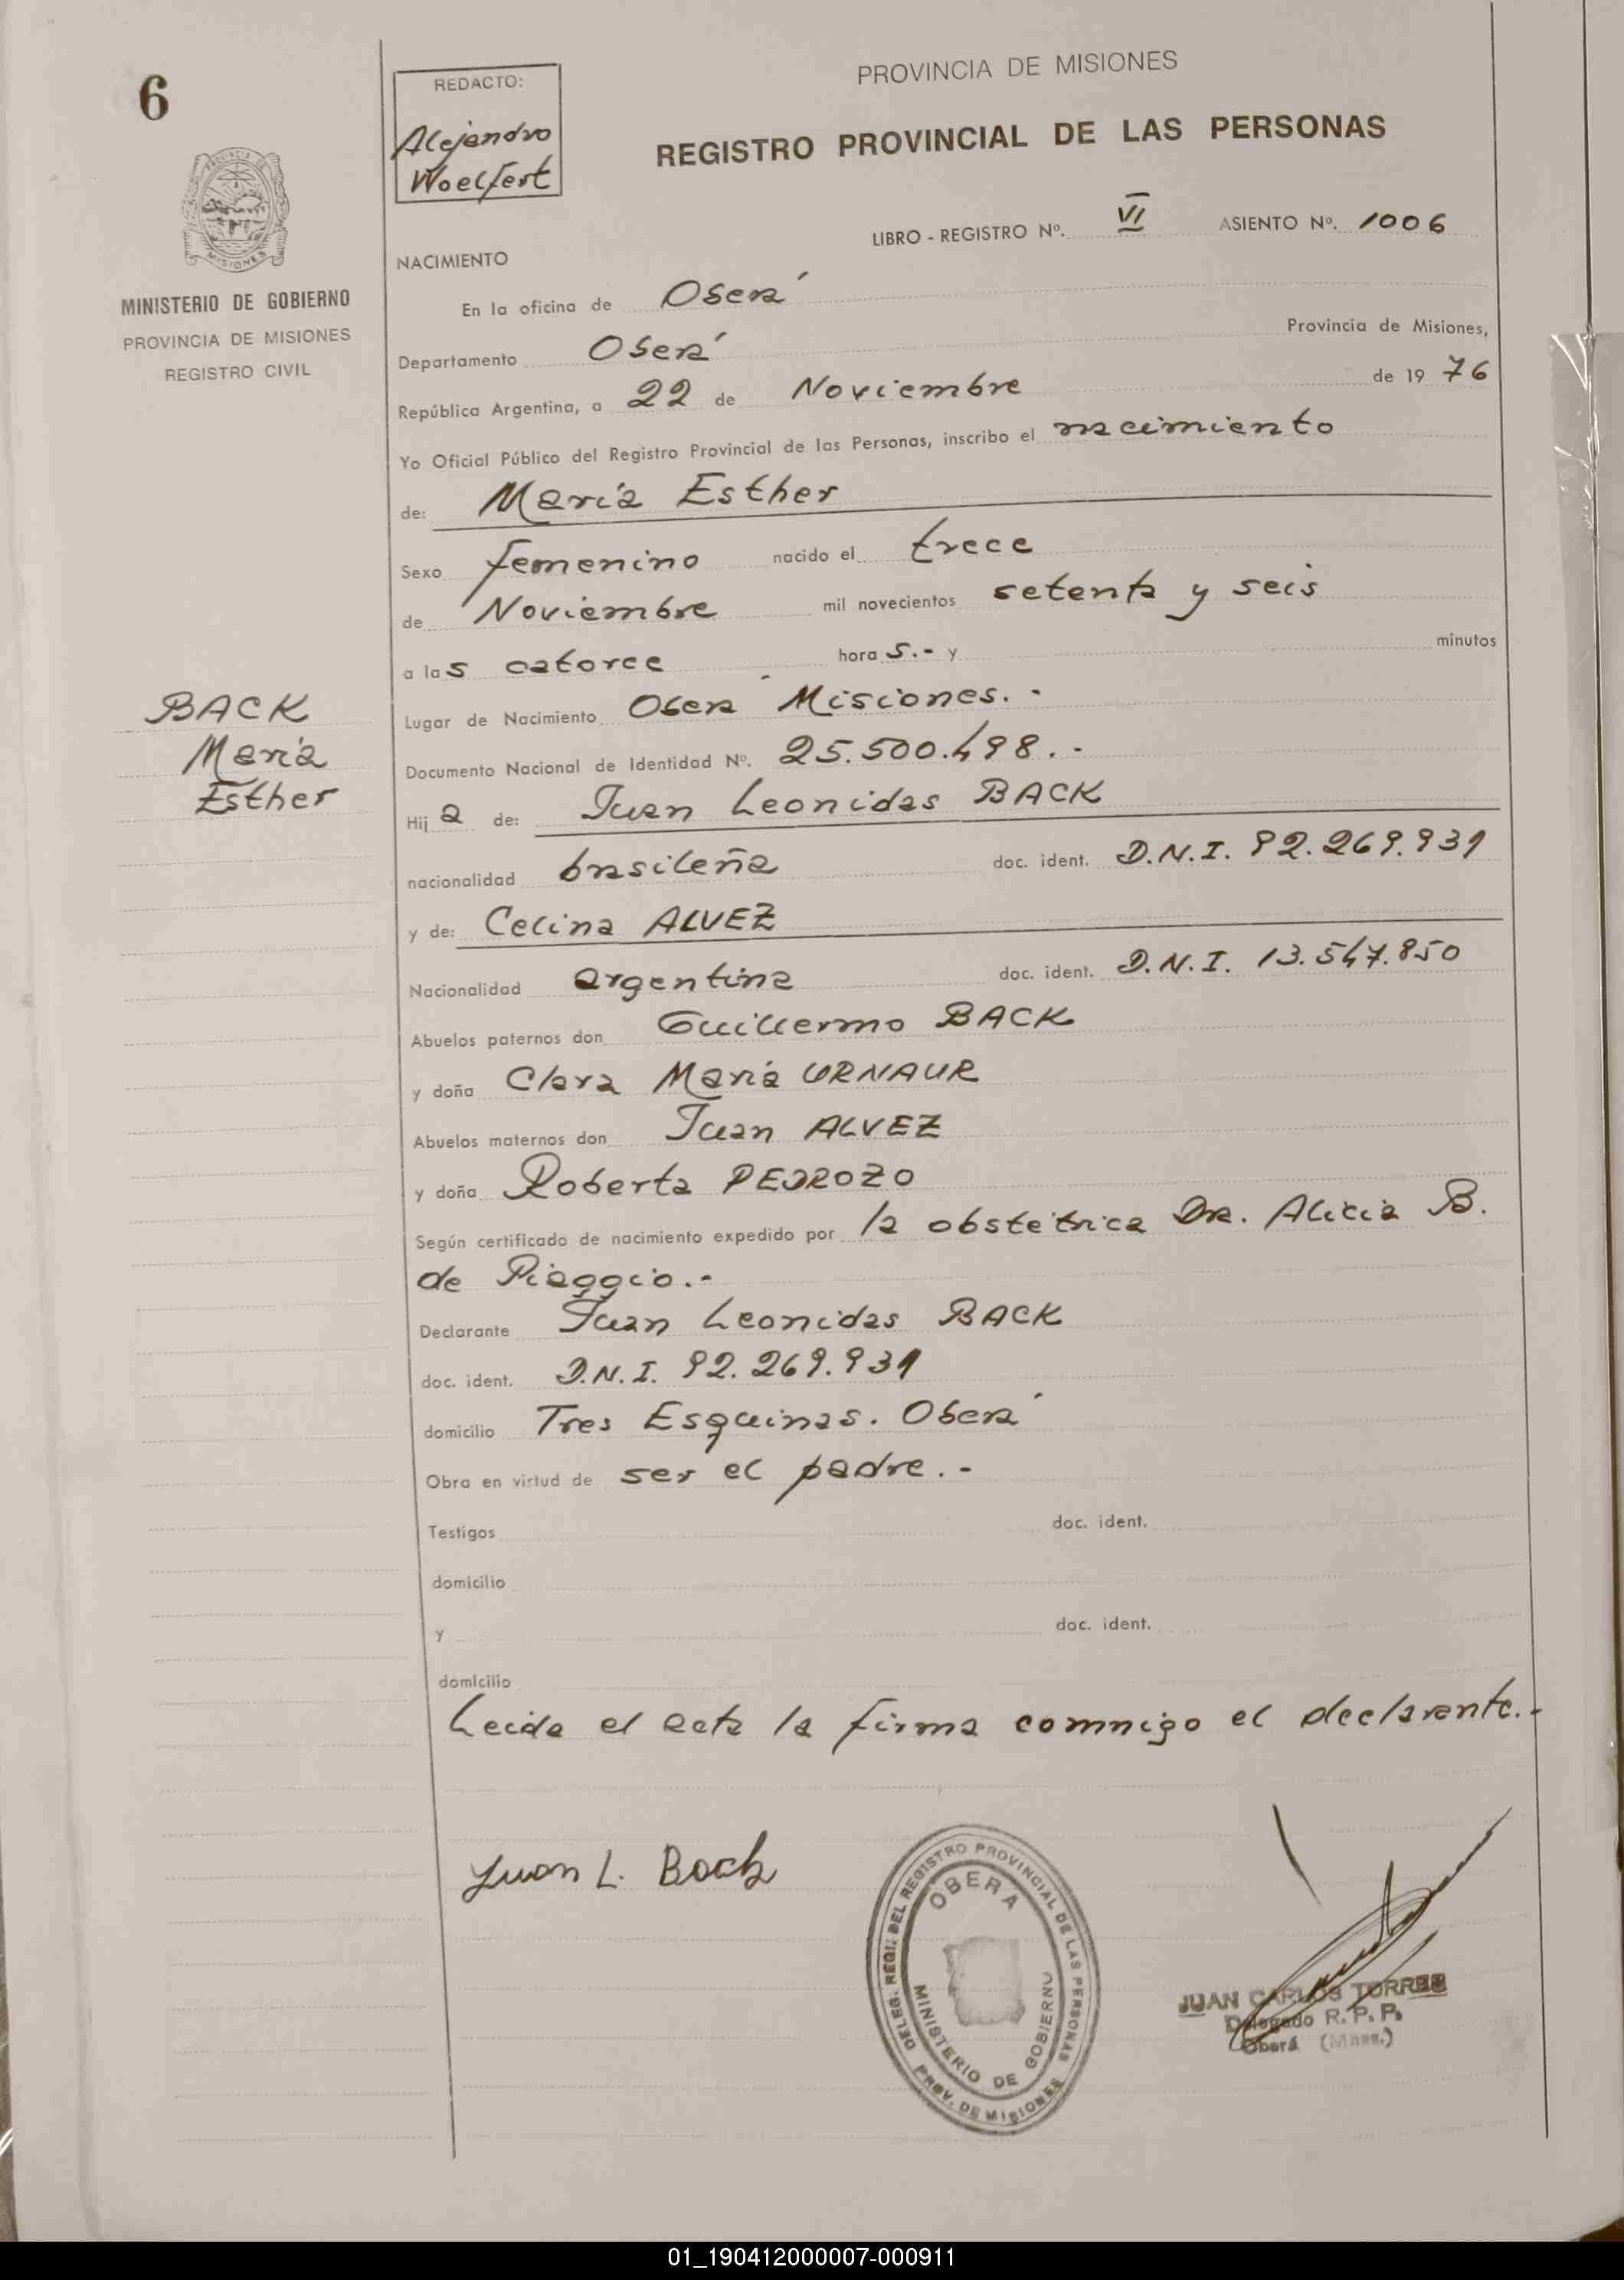 6
REDACTO:
Alejandro
Woelfert
PROVINCIA DE MISIONES
REGISTRO PROVINCIAL DE LAS PERSONAS
LIBRO - REGISTRO Nº. VI ASIENTO Nº. 1006
MISIONES
MINISTERIO DE GOBIERNO
PROVINCIA DE MISIONES
REGISTRO CIVIL
NACIMIENTO
En la oficina de Oberá
Departamento Oberá Provincia de Misiones,
República Argentina, a 22 de Noviembre de 19 76
Yo Oficial Público del Registro Provincial de las Personas, inscribo el nacimiento
de: María Esther
Sexo femenino nacido el trece
de Noviembre mil novecientos setenta y seis
a las catorce hora s.- y minutos
Lugar de Nacimiento Oberá Misiones.-
BACK
María
Esther
Documento Nacional de Identidad Nº. 25.500.498.-
Hij a de: Juan Leonidas BACK
nacionalidad brasileña doc. ident. D.N.I. 92.269.931
y de: Celina ALVEZ
Nacionalidad argentina doc. ident. D.N.I. 13.547.850
Abuelos paternos don Guillermo BACK
y doña Clara María URNAUR
Abuelos maternos don Juan ALVEZ
y doña Roberta PEDROZO
Según certificado de nacimiento expedido por la obstétrica Dra. Alicia B.
de Piaggio.-
Declarante Juan Leonidas BACK
doc. ident. D.N.I. 92.269.931
domicilio Tres Esquinas. Oberá
Obra en virtud de ser el padre.-
Testigos doc. ident.
domicilio
y doc. ident.
domicilio
Leida el acta la firma comnigo el declarante.-
Juan L. Back
DELEG. REGI. DEL REGISTRO PROVINCIAL DE LAS PERSONAS
OBERA
MINISTERIO DE GOBIERNO
PROV. DE MISIONES
JUAN CARLOS TORRES
Delegado R. P. P.
Oberá (Mnes.)
01_190412000007-000911